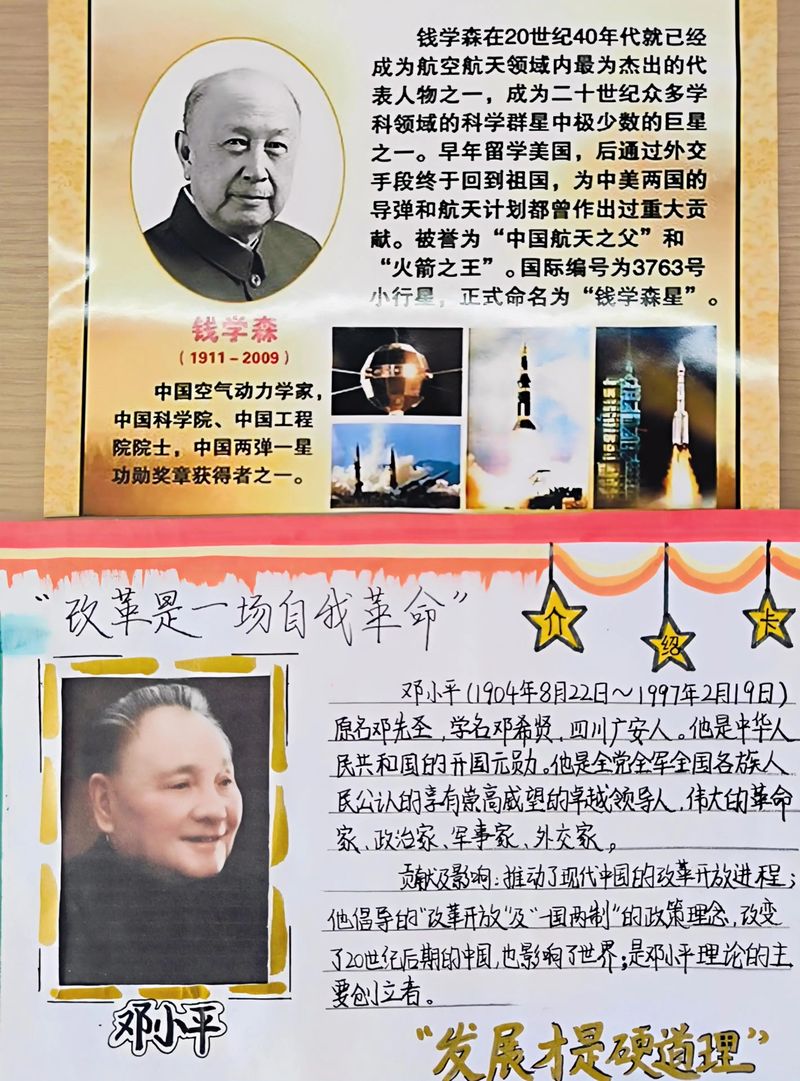 钱学森在20世纪40年代就已经
成为航空航天领域内最为杰出的代
表人物之一，成为二十世纪众多学
科领域的科学群星中极少数的巨星
之一。早年留学美国，后通过外交
手段终于回到祖国，为中美两国的
导弹和航天计划都曾作出过重大贡
献。被誉为“中国航天之父”和
“火箭之王”。国际编号为3763号
小行星，正式命名为“钱学森星”。
钱学森
（1911－2009）
中国空气动力学家，
中国科学院、中国工程
院院士，中国两弹一星
功勋奖章获得者之一。
“改革是一场自我革命”
介绍卡
邓小平(1904年8月22日～1997年2月19日)
原名邓先圣，学名邓希贤，四川广安人。他是中华人
民共和国的开国元勋。他是全党全军全国各族人
民公认的享有崇高威望的卓越领导人，伟大的革命
家、政治家、军事家、外交家。
贡献及影响：推动了现代中国的改革开放进程；
他倡导的“改革开放”及“一国两制”的政策理念，改变
了20世纪后期的中国，也影响了世界；是邓小平理论的主
要创立者。
邓小平
“发展才是硬道理”